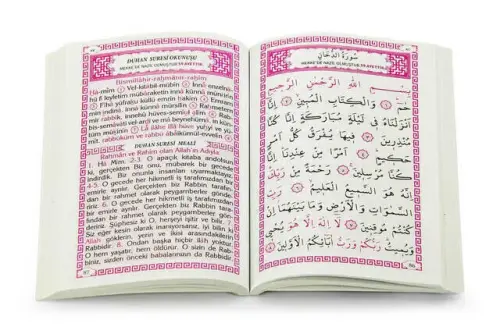 DUHAN SURESİ OKUNUŞU
Bismillâhir-rahmânir-rahîm
Hâ-mîm 1 Vel-kitâbil-mübîn 2 İnnâ enzelnâ-
hü fî leyletim mübâraketin innâ künnâ münzirîn
3 Fîhâ yüfraku küllü emrin hakîm 4 Emram
min indinâ, innâ künnâ mürsilîn 5 Rahmetem-
mir rabbik, innehû hüves-semîul alîm 6 Rab-
bis-semâvâti vel-ardı ve mâ beynehümâ, in kün-
tüm mûkınîn 7 Lâ ilâhe illâ hüve yuhyî ve yü-
mît, rabbüküm ve rabbü âbâikümül-evvelîn 8
DUHAN SURESİ MEALİ
Rahmân ve Rahîm olan Allah'ın Adıyla
1. Hâ Mîm. 2-3. O apaçık kitaba andolsun
ki, gerçekten Biz onu, mübarek bir gecede
indirdik. Biz onunla insanları uyarmaktayız.
4-5. O gecede her hikmetli iş tarafımızdan
bir emirle ayrılır. Gerçekten Biz Rabbin tarafın-
dan bir rahmet olarak peygamberler gönder-
Allah göklerin, yerin ve ikisi arasındakilerin
Rabbidir. 8. Ondan başka hiçbir ilâh yoktur.
O hem yaşatır, hem öldürür. O sizin de Rab-
biniz, sizden önceki babalarınızın da Rabbidir.
سُورَةُ الدُّخَانِ
بِسْمِ اللهِ الرَّحْمٰنِ الرَّحِيمِ
حٰمٓ ۝ وَالْكِتَابِ الْمُبِينِ ۝ إِنَّا
أَنْزَلْنَاهُ فِي لَيْلَةٍ مُبَارَكَةٍ إِنَّا كُنَّا
مُنْذِرِينَ ۝ فِيهَا يُفْرَقُ كُلُّ أَمْرٍ
حَكِيمٍ ۝ أَمْرًا مِنْ عِنْدِنَا إِنَّا
كُنَّا مُرْسِلِينَ ۝ رَحْمَةً مِنْ رَبِّكَ
إِنَّهُ هُوَ السَّمِيعُ الْعَلِيمُ ۝ رَبِّ
السَّمٰوَاتِ وَالْأَرْضِ وَمَا بَيْنَهُمَا إِنْ
كُنْتُمْ مُوقِنِينَ ۝ لَا إِلٰهَ إِلَّا هُوَ يُحْيِي
وَيُمِيتُ رَبُّكُمْ وَرَبُّ آبَائِكُمُ الْأَوَّلِينَ ۝